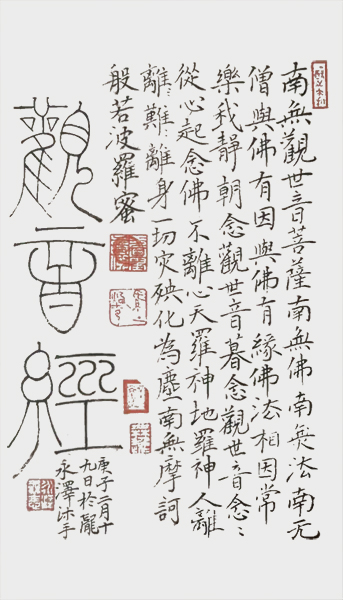 南無觀世音菩薩南無佛南無法南无
僧與佛有因與佛有緣佛法相因常
樂我靜朝念觀世音暮念觀世音念〻
從心起念佛不離心天羅神地羅神人離
離難〻離身一切灾殃化為塵南無摩訶
般若波羅蜜
觀音經
庚子二月十
九日於龍
永澤沐手